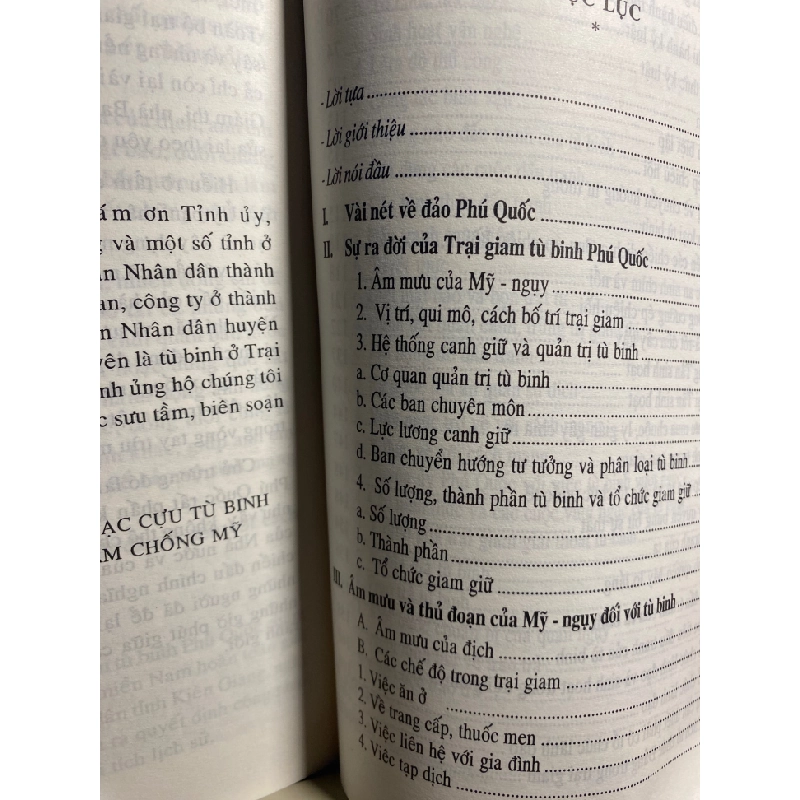 ấm ơn Tỉnh ủy,
và một số tỉnh ở
n Nhân dân thành
an, công ty ở thành
n Nhân dân huyện
yên là tù binh ở Trại
nh ủng hộ chúng tôi
c sưu tầm, biên soạn
ẠC CỰU TÙ BINH
ĂM CHỐNG MỸ
ỤC LỤC
*
-Lời tựa
-Lời giới thiệu
-Lời nói đầu
I. Vài nét về đảo Phú Quốc
II. Sự ra đời của Trại giam tù binh Phú Quốc
1. Âm mưu của Mỹ - ngụy
2. Vị trí, qui mô, cách bố trí trại giam
3. Hệ thống canh giữ và quản trị tù binh
a. Cơ quan quản trị tù binh
b. Các ban chuyên môn
c. Lực lương canh giữ
d. Ban chuyển hướng tư tưởng và phân loại tù binh
4. Số lượng, thành phần tù binh và tổ chức giam giữ
a. Số lượng
b. Thành phần
c. Tổ chức giam giữ
III. Âm mưu và thủ đoạn của Mỹ - ngụy đối với tù binh
A. Âm mưu của địch
B. Các chế độ trong trại giam
1. Việc ăn ở
2. Về trang cấp, thuốc men
3. Việc liên hệ với gia đình
4. Việc tạp dịch